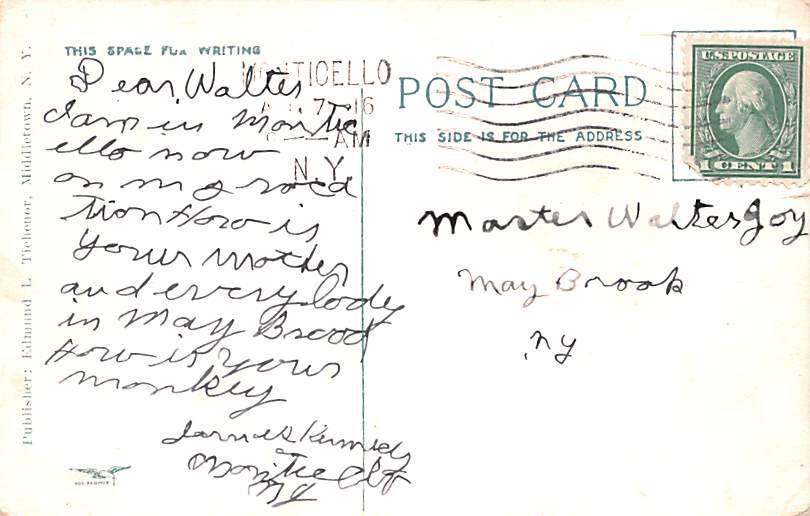 THIS SPACE FOR WRITING
Dear Walter
I am in Montic
ello now
on my vaca
tion How is
your mother
and everybody
in May Brook
How is your
monkey
Kennedy
Monticello
NY
Publisher: Edmund L Tichenor, Middletown, N. Y.
MONTICELLO
7 16
AM
N.Y.
POST CARD
THIS SIDE IS FOR THE ADDRESS
U.S. POSTAGE
1 CENT 1
Master Walter Joy
May Brook
NY